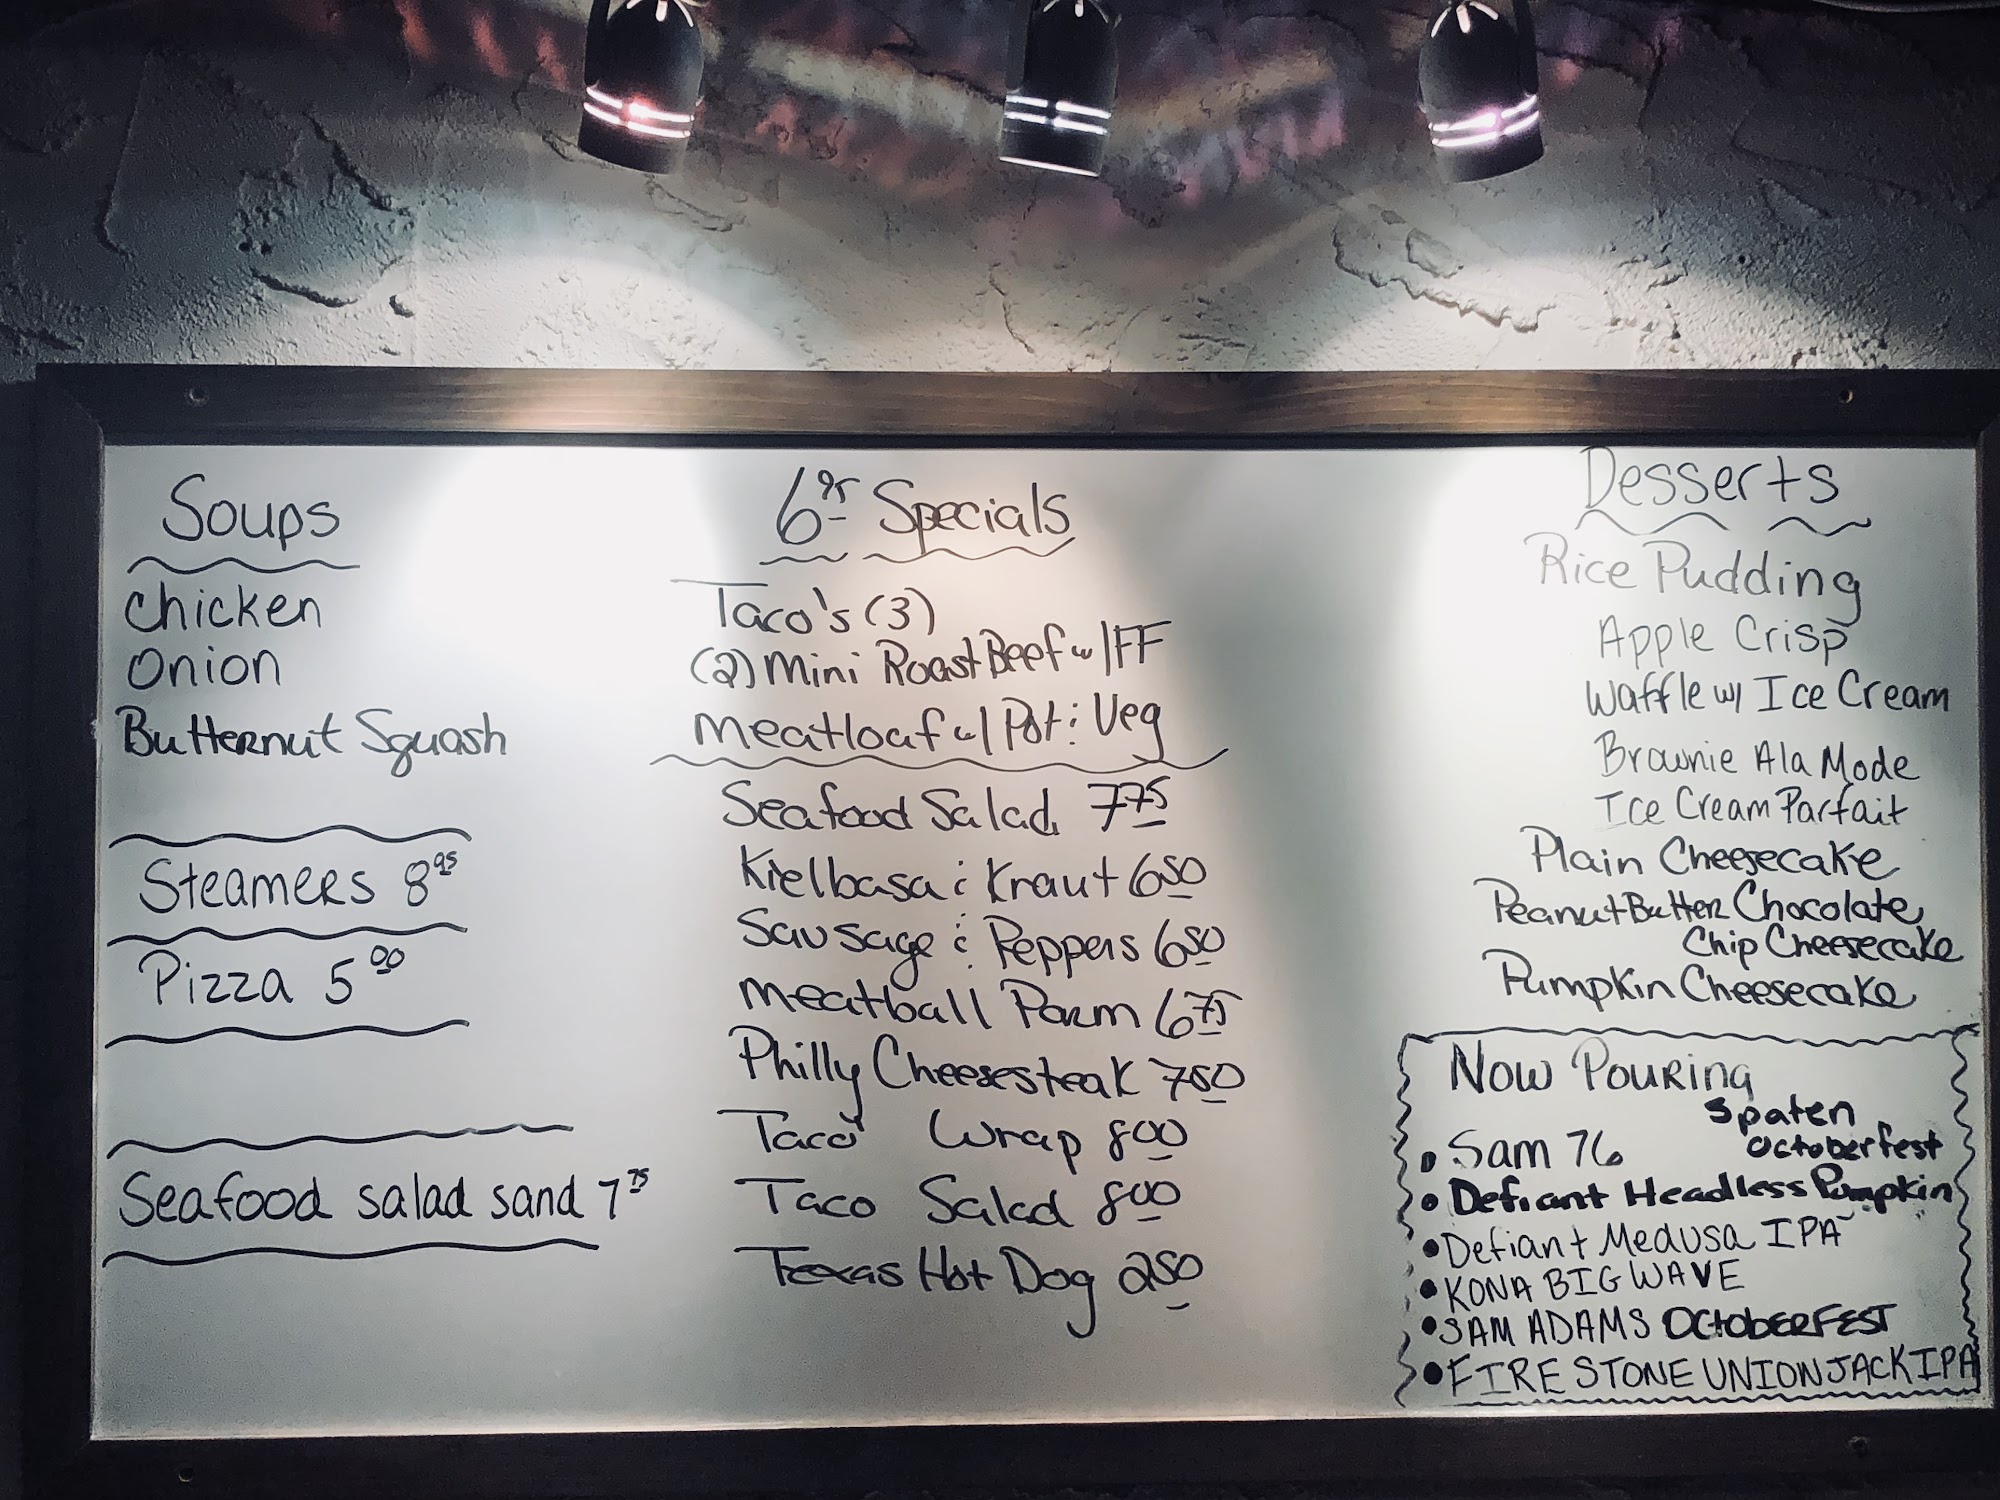 Soups
Chicken
Onion
Butternut Squash
Steamers 8 95
Pizza 5 00
Seafood salad sand 7 75
6 95 Specials
Taco's (3)
(2) Mini Roast Beef w/FF
Meatloaf w/ Pot & Veg
Seafood Salad 7 75
Kielbasa & Kraut 6 50
Sausage & Peppers 6 50
Meatball Parm 6 75
Philly Cheesesteak 7 50
Taco Wrap 8 00
Taco Salad 8 00
Texas Hot Dog 2 50
Desserts
Rice Pudding
Apple Crisp
Waffle w/ Ice Cream
Brownie Ala Mode
Ice Cream Parfait
Plain Cheesecake
Peanut Butter Chocolate
Chip Cheesecake
Pumpkin Cheesecake
Now Pouring
Spaten
Octoberfest
• Sam 76
• Defiant Headless Pumpkin
• Defiant Medusa IPA
• KONA BIG WAVE
• SAM ADAMS OCTOBERFEST
• FIRE STONE UNION JACK IPA